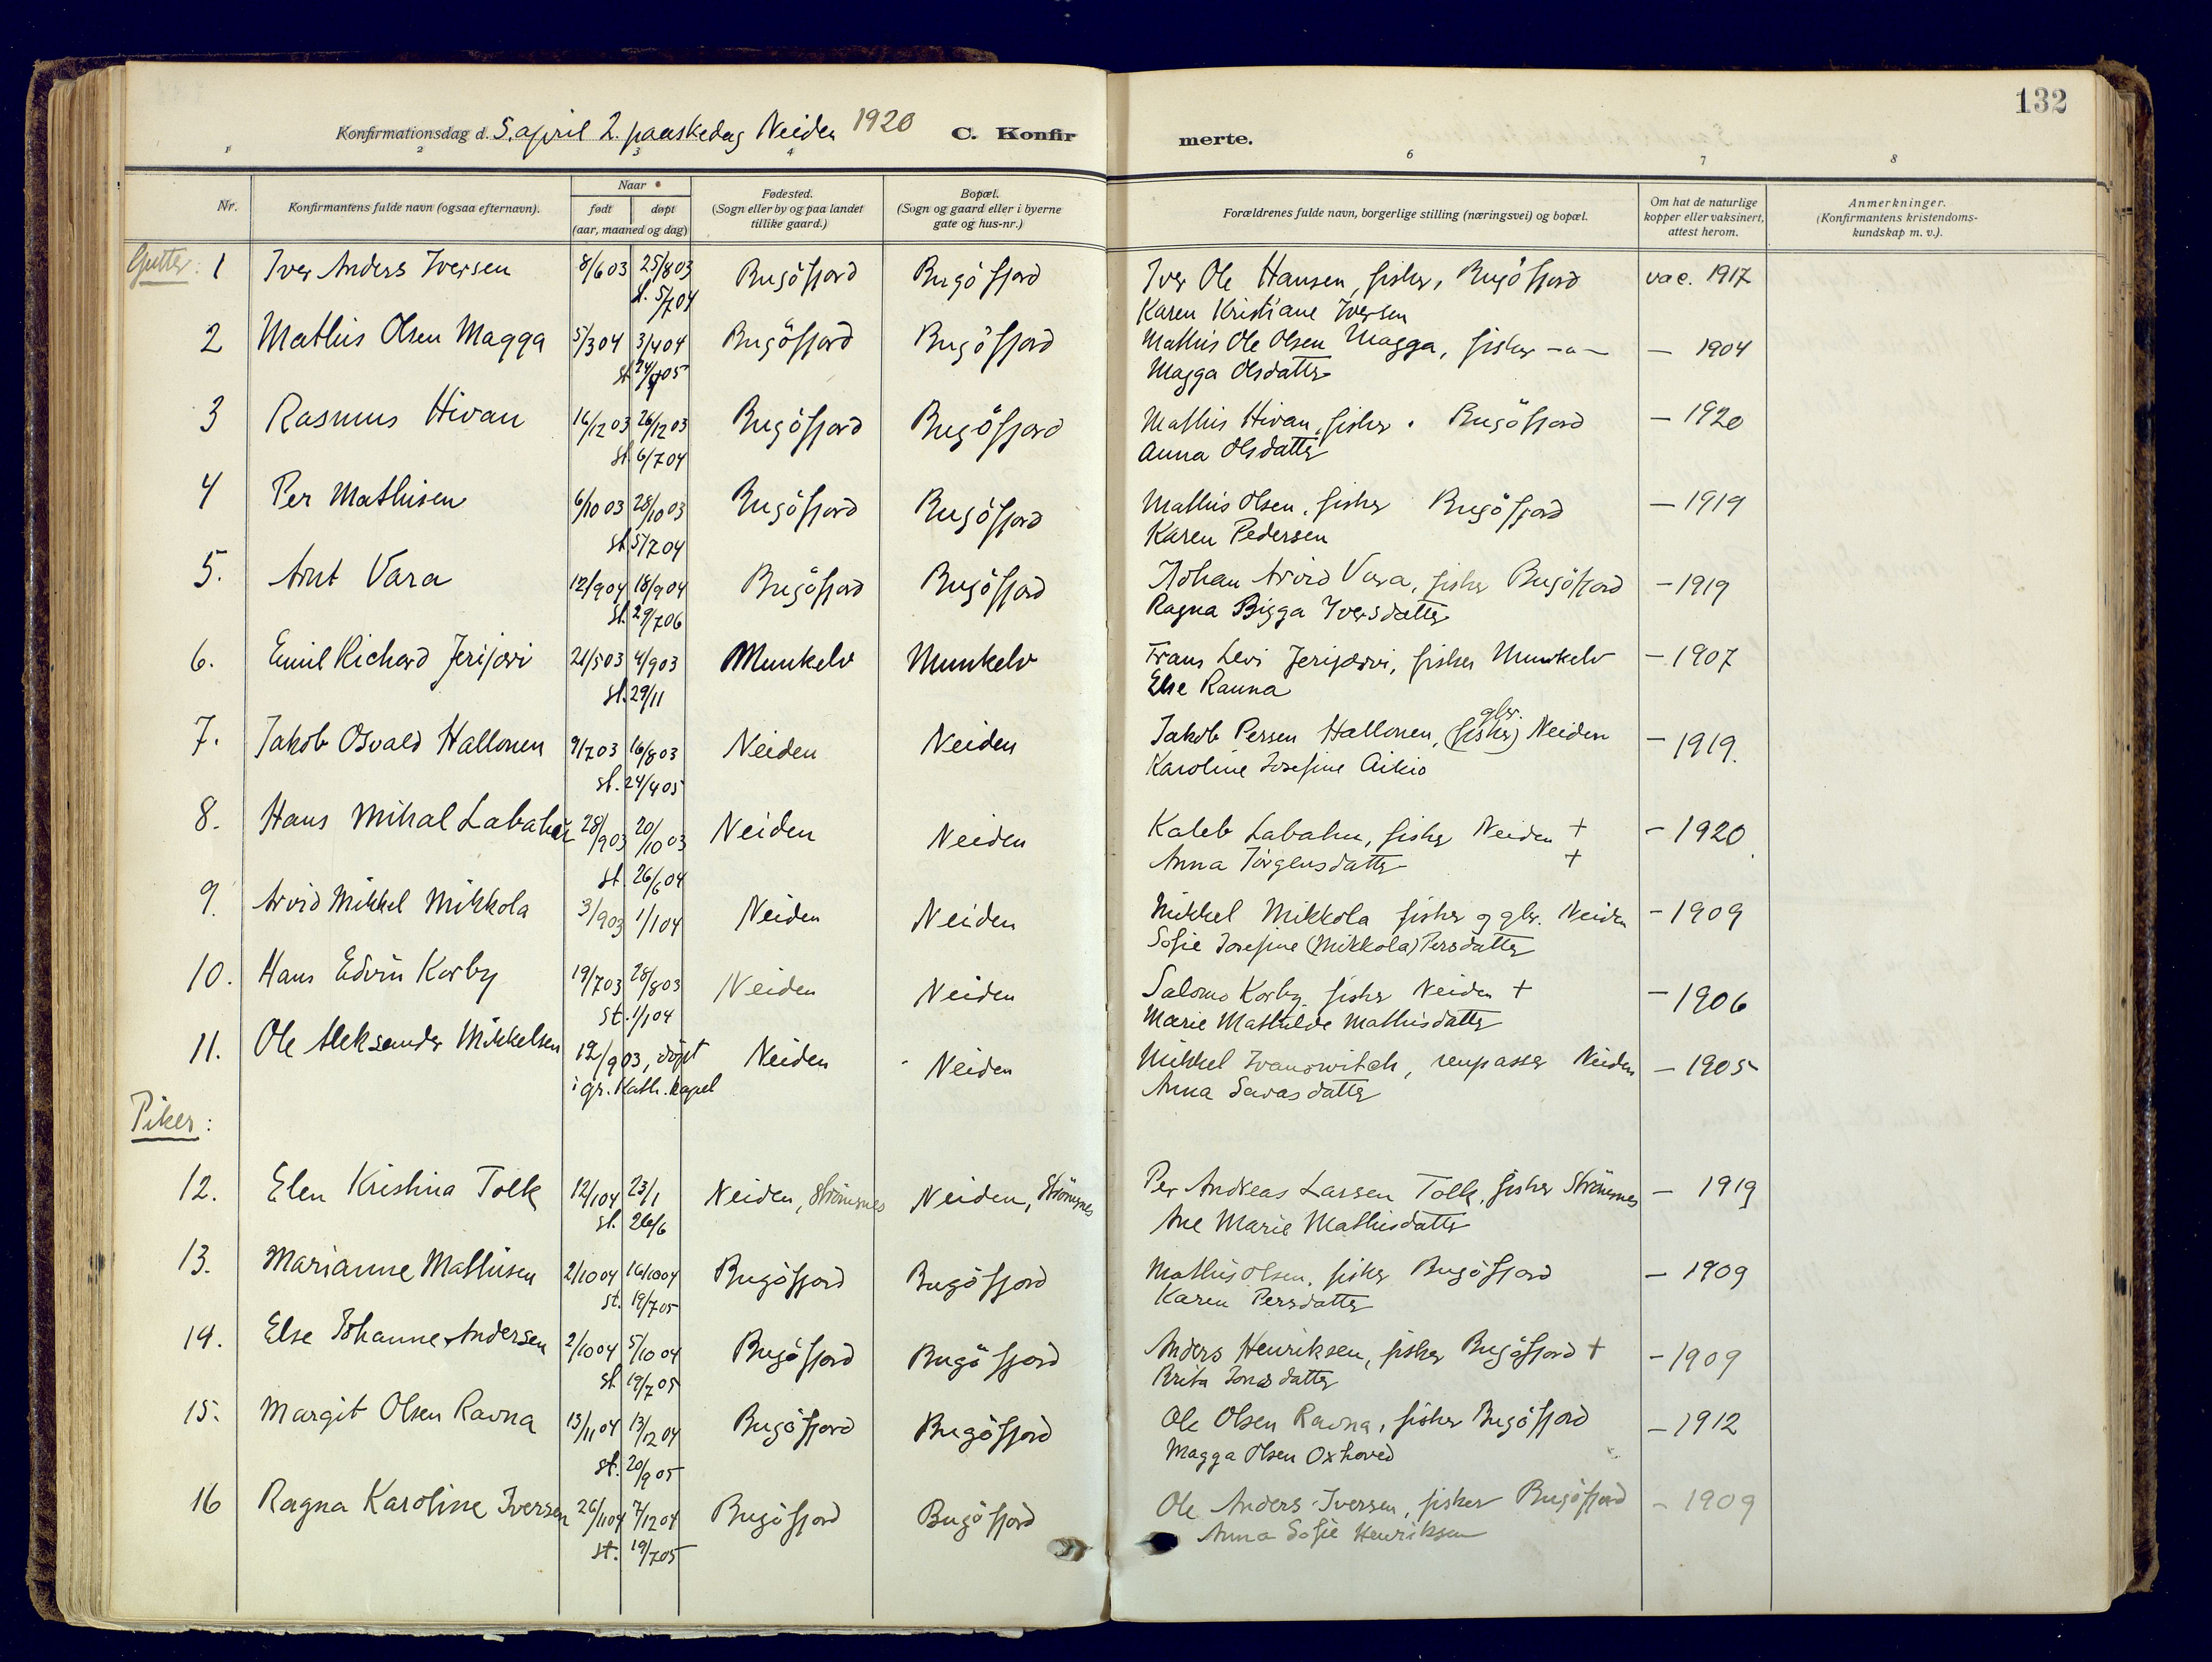 132
Konfirmationsdag d. 5. april 2. paaskedag Neiden 1920 C. Konfir merte.
1 2 3 4 6 7 8
Nr. Konfirmantens fulde navn (ogsaa efternavn). Naar født døpt (aar, maaned og dag) Fødested. (Sogn eller by og paa landet tillike gaard.) Bopæl. (Sogn og gaard eller i byerne gate og hus-nr.) Forældrenes fulde navn, borgerlige stilling (næringsvei) og bopæl. Om hat de naturlige kopper eller vaksinert, attest herom. Anmerkninger. (Konfirmantens kristendoms-kundskap m. v.).
Gutter: 1 Iver Anders Iversen 8/6 03 25/8 03 Bugöfjord Bugöfjord Iver Ole Hansen, fisker, Bugöfjord vac. 1917
st. 5/7 04 Karen Kristiane Iversen
2 Mathis Olsen Magga 5/3 04 3/4 04 Bugöfjord Bugöfjord Mathis Ole Olsen Magga, fisker -"- — 1904
st. 05 Magga Olsdatter
3 Rasmus Hivan 16/12 03 26/12 03 Bugöfjord Bugöfjord Mathis Hivan, fisker. Bugöfjord — 1920
st. 6/7 04 Anna Olsdatter
4 Per Mathisen 6/10 03 28/10 03 Bugöfjord Bugöfjord Mathis Olsen, fisker Bugöfjord — 1919
st. 5/7 04 Karen Pedersen
5. Arnt Vara 12/9 04 18/9 04 Bugöfjord Bugöfjord Johan Arvid Vara, fisker Bugöfjord — 1919
st. 29/7 06 Ragna Bigga Iversdatter
6. Emil Richard Jerijærvi 21/5 03 4/9 03 Munkelv Munkelv Frans Levi Jerijærvi, fisker Munkelv — 1907
st. 29/11 Else Rauna
7. Jakob Osvald Hallonen 9/7 03 16/8 03 Neiden Neiden Jakob Persen Hallonen, (fisker) gbr. Neiden — 1919.
st. 24/4 05 Karoline Josefine Aikio
8. Hans Mikal 28/9 03 20/10 03 Neiden Neiden Kaleb Labahu, fisker Neiden + — 1920
st. 26/6 04 Anna Jörgensdatter +
9. Arvid Mikkel Mikkola 3/9 03 1/1 04 Neiden Neiden Mikkel Mikkola fisker og gbr. Neiden — 1909
Sofie Josefine (Mikkola) Persdatter
10. Hans Edvin Korby 19/7 03 28/8 03 Neiden Neiden Salomo Korby, fisker Neiden + — 1906
st. 1/1 04 Marie Mathilde Mathisdatter
11. Ole Aleksander Mikkelsen 12/9 03, döpt Neiden Neiden Mikkel Ivanowitch, renpasser Neiden — 1905
i gr. kath. kapel Anna Savasdatter
Piker:
12. Elen Kristina Tolk 12/1 04 23/1 Neiden, Strömsnes Neiden, Strömsnes Per Andreas Larsen Tolk, fisker Strömsnes — 1919
st. 26/6 Ane Marie Mathisdatter
13. Marianne Mathisen 2/10 04 16/10 04 Bugöfjord Bugöfjord Mathis Olsen, fisker Bugöfjord — 1909
st. 19/7 05 Karen Persdatter
14. Else Johanne Andersen 2/10 04 5/10 04 Bugöfjord Bugöfjord Anders Henriksen, fisker Bugöfjord + — 1909
st. 19/7 05 Brita Jonasdatter
15. Margit Olsen Ravna 13/11 04 13/12 04 Bugöfjord Bugöfjord Ole Olsen Ravna, fisker Bugöfjord — 1912
st. 20/9 05 Magga Olsen Oxhoved
16 Ragna Karoline Iversen 26/11 04 7/12 04 Bugöfjord Bugöfjord Ole Anders Iversen, fisker Bugöfjord — 1909
st. 19/7 05 Anna Sofie Henriksen